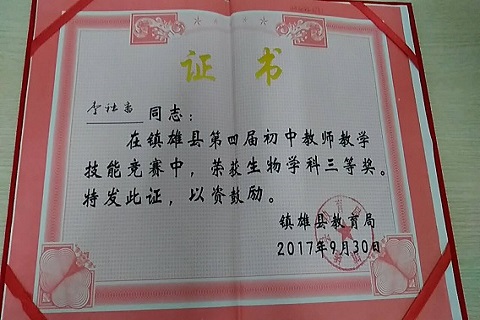 证书
李社富 同志：
在镇雄县第四届初中教师教学
技能竞赛中，荣获生物学科三等奖。
特发此证，以资鼓励。
镇雄县教育局
2017年9月30日